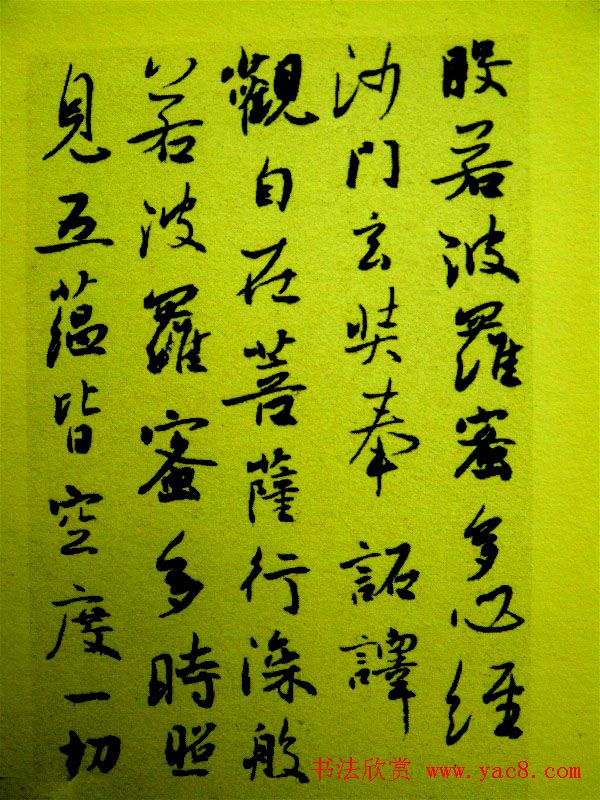 般若波羅蜜多心經
沙門玄奘奉 詔譯
觀自在菩薩行深般
若波羅蜜多時照
見五蘊皆空度一切
书法欣赏 www.yac8.com